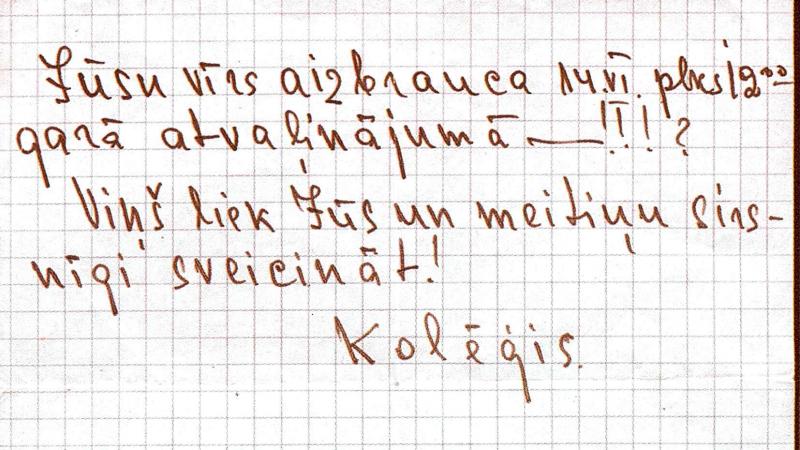 Jūsu vīrs aizbrauca 14.VI. plks 12⁰⁰
gaŗā atvaļinājumā —!!! ?
Viņš liek Jūs un meitiņu sirs-
nīgi sveicināt!
Kolēģis.